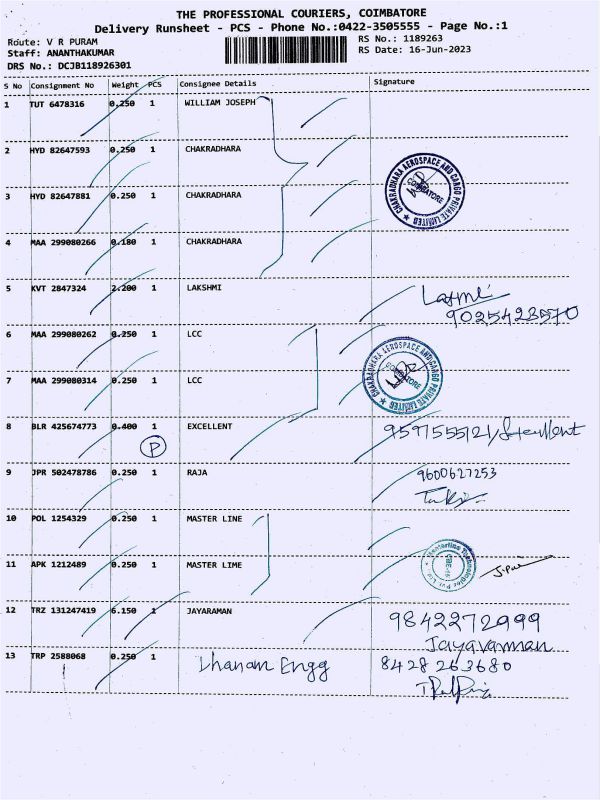 THE PROFESSIONAL COURIERS, COIMBATORE
Delivery Runsheet - PCS - Phone No.:0422-3505555 - Page No.:1
Route: V R PURAM RS No.: 1189263
Staff: ANANTHAKUMAR RS Date: 16-Jun-2023
DRS No.: DCJB118926301
S No Consignment No Weight PCS Consignee Details Signature
1 TUT 6478316 0.250 1 WILLIAM JOSEPH
2 HYD 82647593 0.250 1 CHAKRADHARA
CHAKRADHARA AEROSPACE AND CARGO PRIVATE LIMITED
COIMBATORE
3 HYD 82647881 0.250 1 CHAKRADHARA
4 MAA 299080266 0.180 1 CHAKRADHARA
5 KVT 2847324 2.200 1 LAKSHMI Laxmi
9025423570
6 MAA 299080262 0.250 1 LCC
CHAKRADHARA AEROSPACE AND CARGO PRIVATE LIMITED
COIMBATORE
7 MAA 299080314 0.250 1 LCC
8 BLR 425674773 0.400 1 EXCELLENT 9597555121/Excellent
P
9 JPR 502478786 0.250 1 RAJA 9600627253
10 POL 1254329 0.250 1 MASTER LINE
11 APK 1212489 0.250 1 MASTER LIME
12 TRZ 131247419 6.150 1 JAYARAMAN 9842272999
Jayavarman
13 TRP 2588068 0.250 1 Dhanam Engg 8428263680